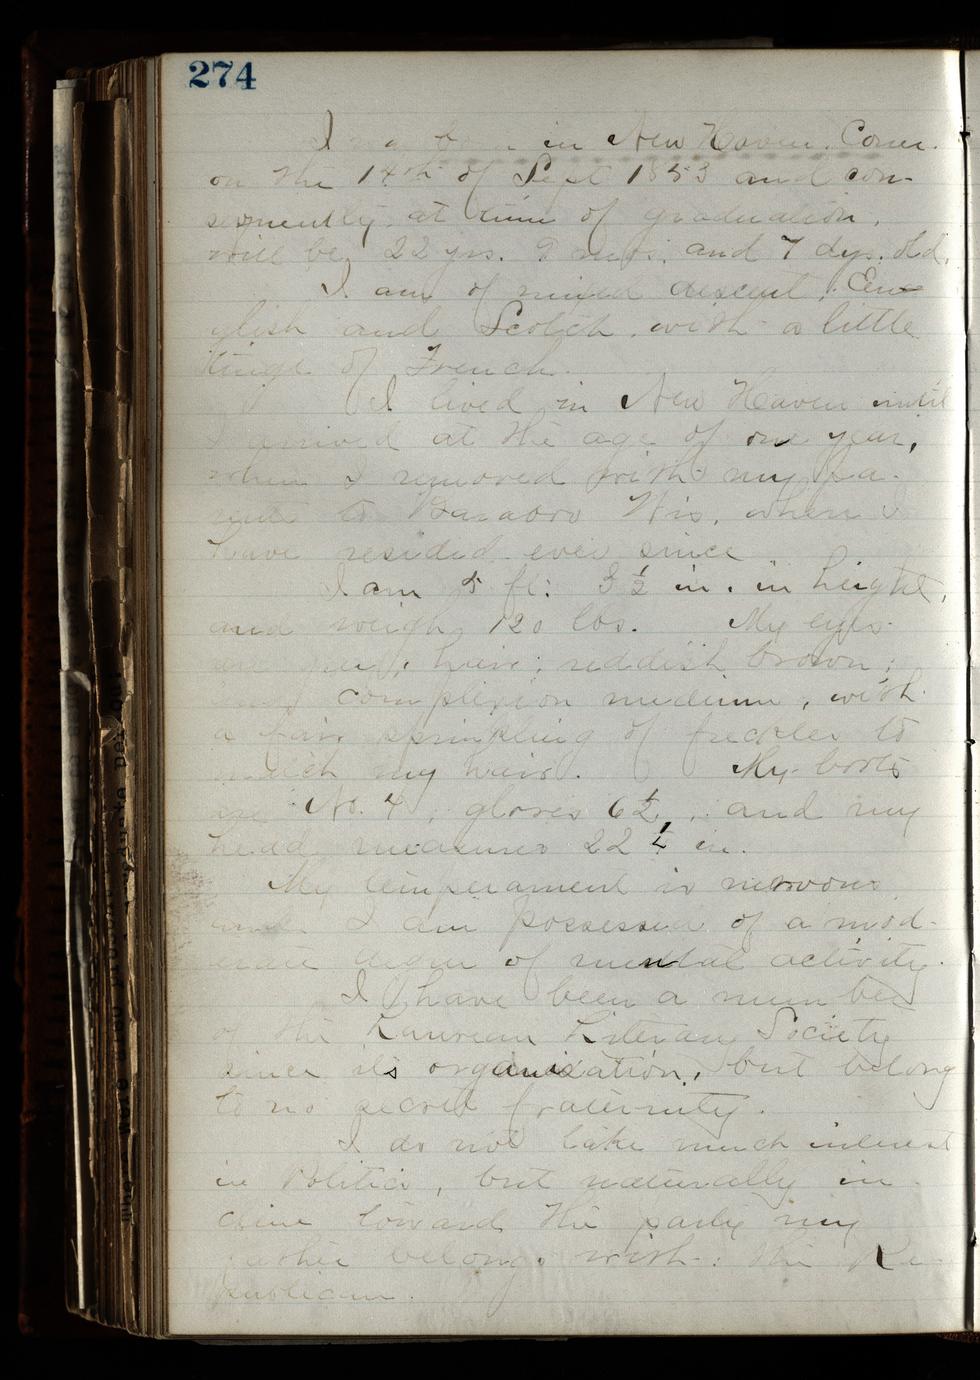 274
I was born in New Haven, Conn.
on the 14th of Sept 1853 and con-
sequently, at time of graduation,
will be, 22 yrs. 9 mos. and 7 dys. old.
I am of mixed descent, En-
glish and Scotch, with a little
tinge of French.
I lived in New Haven until
I arrived at the age of one year,
when I removed with my pa-
rents to Baraboo Wis. where I
have resided ever since
I am 5 ft. 3½ in. in height,
and weigh 120 lbs. My eyes
are grey, hair; reddish brown;
and complexion medium, with
a fair sprinkling of freckles to
match my hair. My boots
are No. 4, gloves 6½, and my
head measures 22 in.
My temperament is nervous
and I am possessed of a mod-
erate degree of mental activity.
I have been a member
of the Laurean Literary Society
since its organization, but belong
to no secret fraternity.
I do not take much interest
in Politics, but naturally in-
cline toward the party my
father belongs with: the Re-
publican.